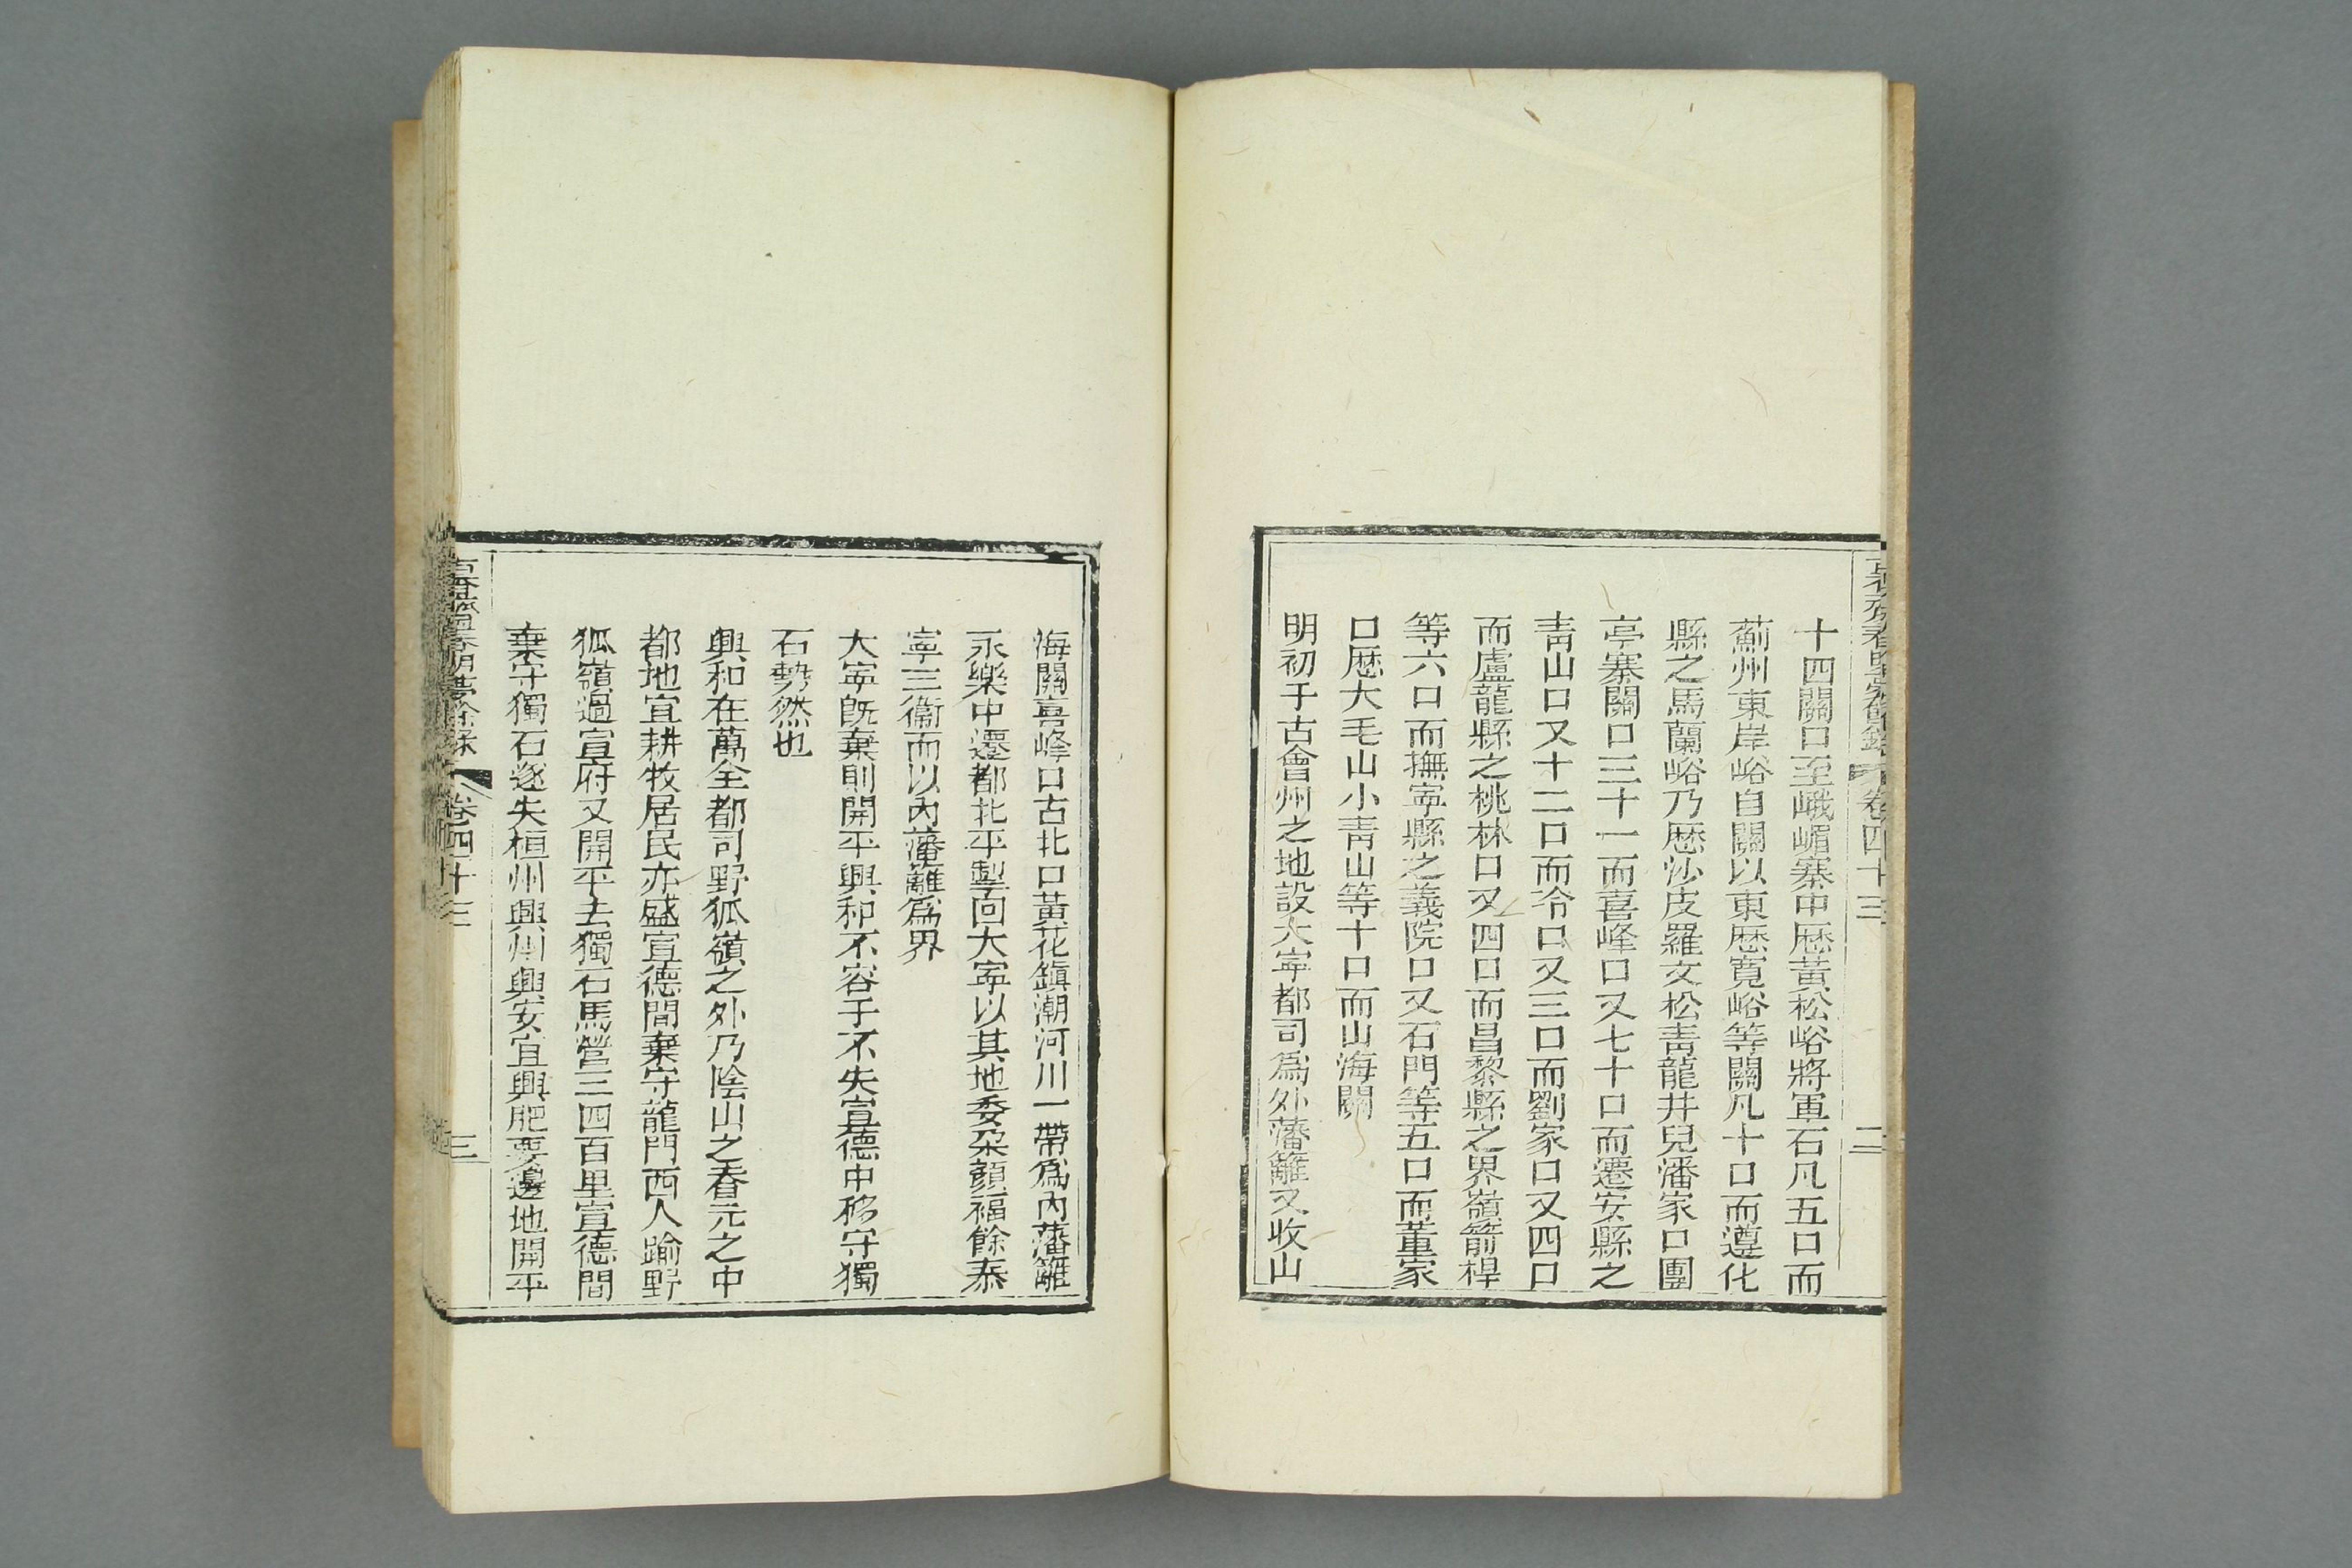 十四關口至峨嵋寨中歷黃松峪將軍石凡五口而
薊州東岸峪自關以東歷寬峪等關凡十口而遵化
縣之馬蘭峪乃歷沙皮羅文松青龍井兒潘家口團
亭寨關口三十一而喜峰口又七十口而遷安縣之
青山口又十二口而冷口又三口而劉家口又四口
而盧龍縣之桃林口又四口而昌黎縣之界嶺箭桿
等六口而撫寧縣之義院口又石門等五口而董家
口歷大毛山小青山等十口而山海關
明初于古會州之地設大寧都司爲外藩籬又收山
卷四十三
二
海關喜峰口古北口黃花鎮潮河川一帶爲內藩籬
永樂中遷都北平掣回大寧以其地委朶顏福餘泰
寧三衞而以內藩籬爲界
大寧旣棄則開平興和不容于不失宣德中移守獨
石勢然也
興和在萬全都司野狐嶺之外乃陰山之脊元之中
都地宜耕牧居民亦盛宣德間棄守龍門西人踰野
狐嶺過宣府又開平去獨石馬營三四百里宣德間
棄守獨石遂失桓州興州興安宜興肥要邊地開平
古香齋春明夢餘錄
卷四十三
三